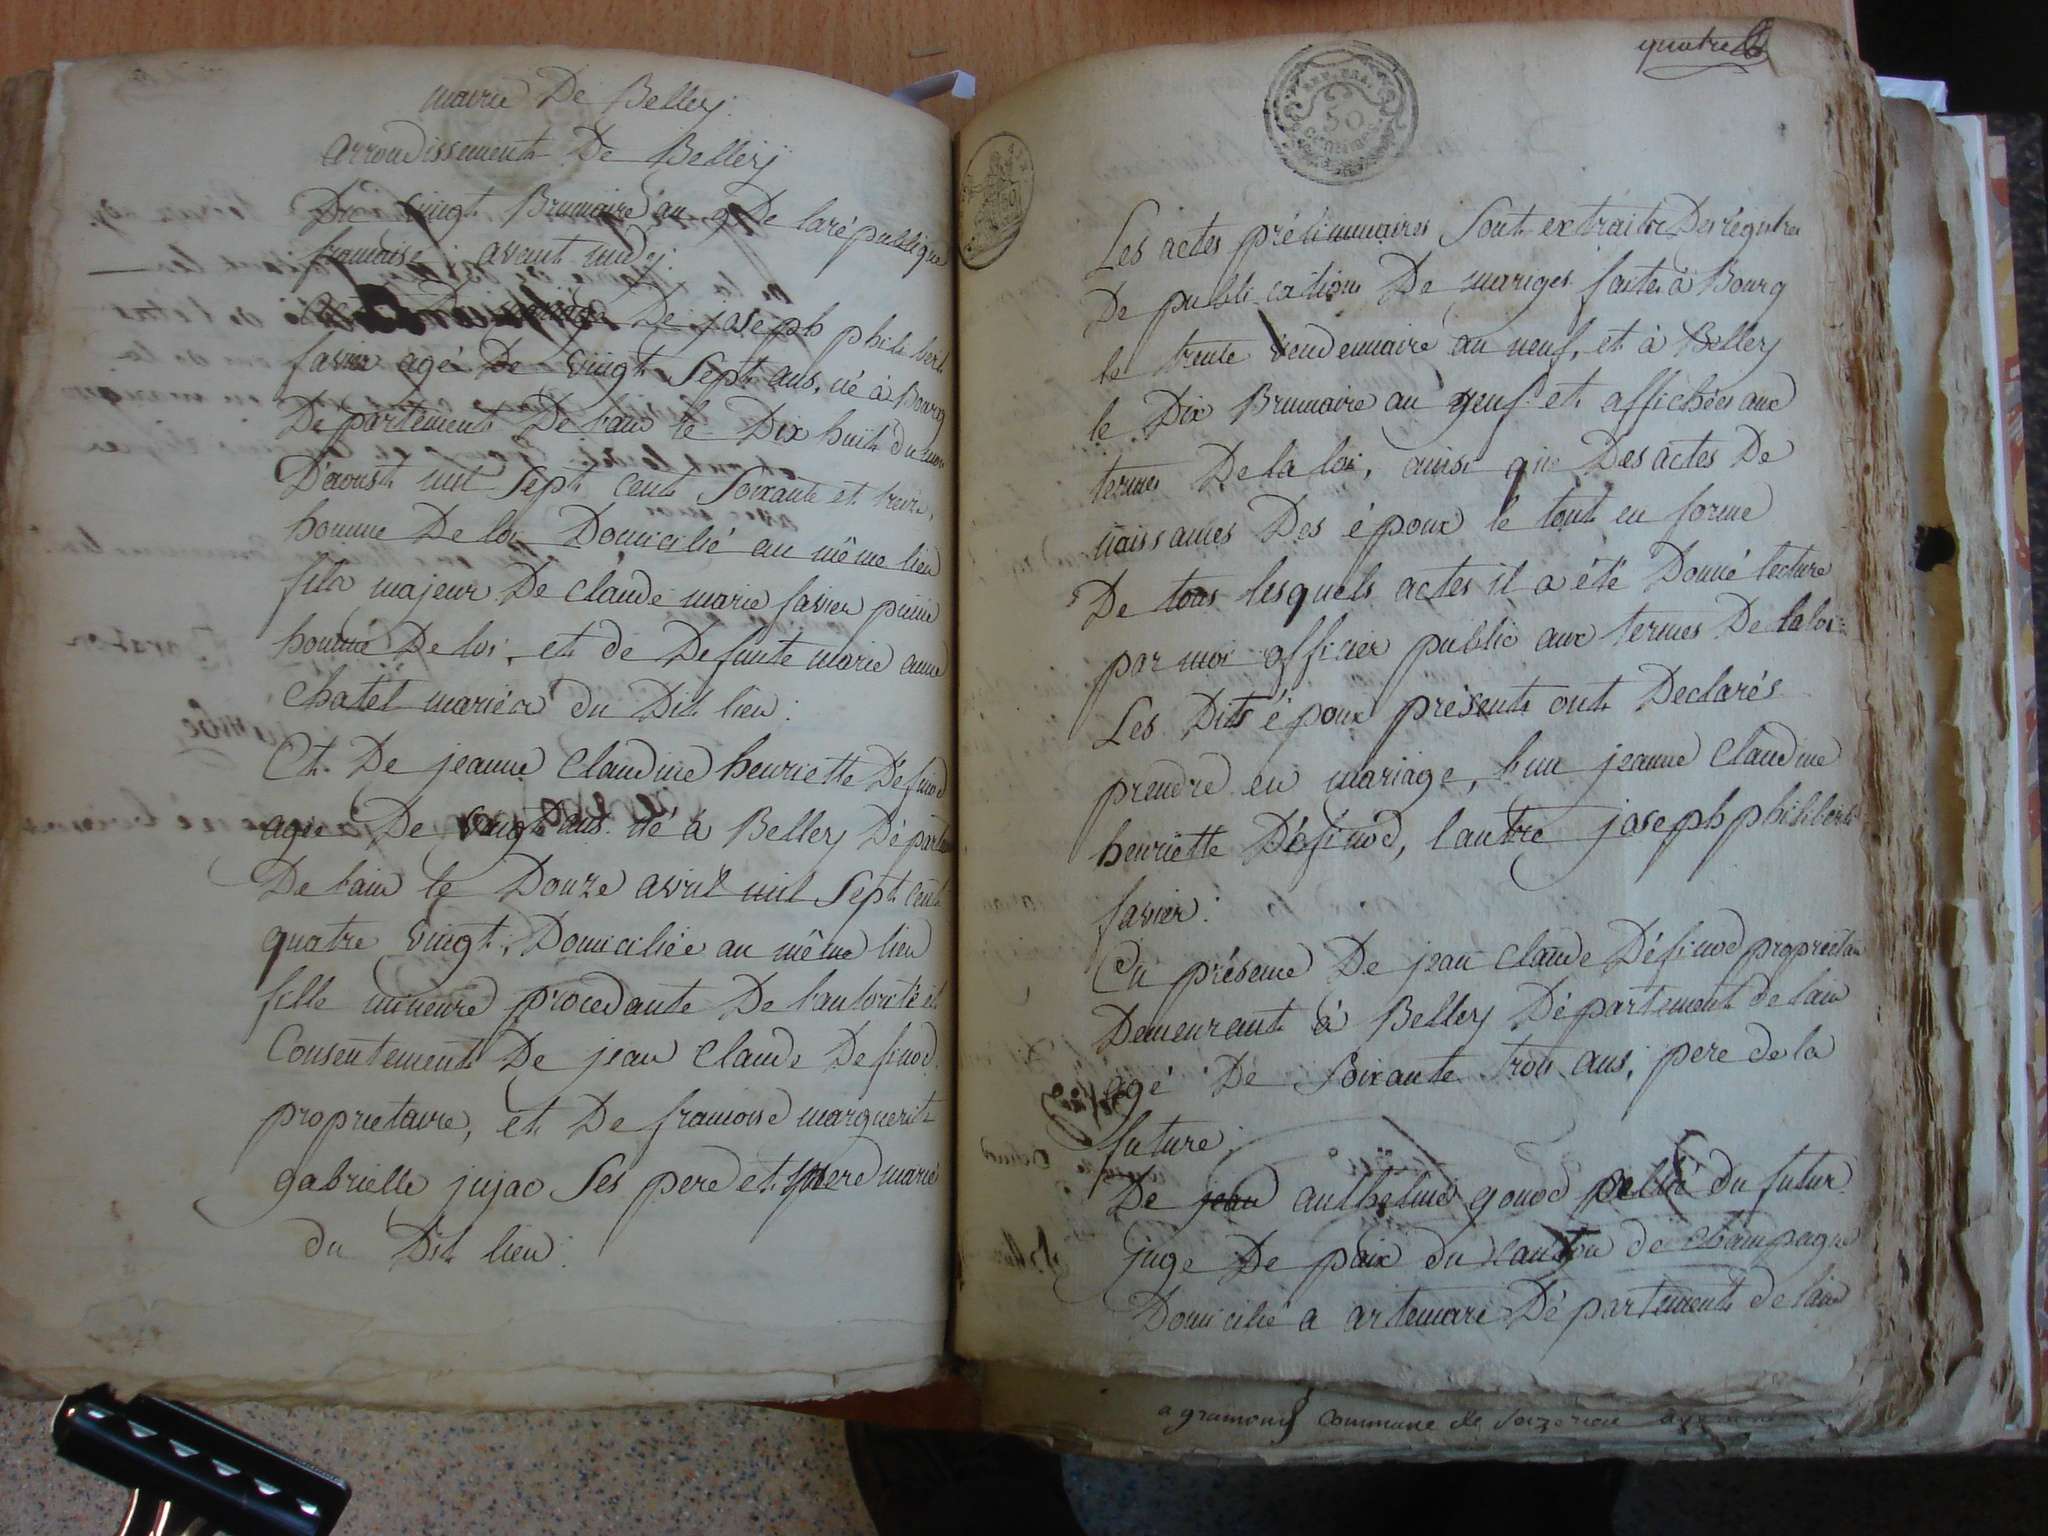 mairie De Belley
arrondissement De Belley
Du vingt Brumaire an 9 De la république
francaise avant midi
De joseph philibert
favier agé De vingt Sept ans, né à Bourg
Departement De lain le Dix huit du mois
D'aoust mil Sept cent Soixante et treize,
homme De loi Domicilié au même lieu
fils majeur De Claude marie favier
homme De loi, et de Defunte marie anne
Chatel mariés du Dit lieu :
Et De jeanne Claudine henriette Définod
agée De vingt ans né à Belley Départ
De lain le Douze avril mil Sept cent
quatre vingt, Domiciliée au même lieu
fille mineure procedante De l'autorité et
Consentement De jean Claude Definod
proprietaire, et De francoise marguerite
gabrielle jujac Ses pere et mere mariés
du Dit lieu :
quatre
REP. FRA.
50
Centimes
Les actes préliminaires Sont extraits Des régistres
De publications De mariges faites à Bourg
le trente vendemiaire an neuf, et à Belley
le Dix Brumaire an neuf et affichées aux
termes De la loi, ainsi que Des actes De
naissances Des époux le tout en forme
De tous lesquels actes il a été Donné lecture
par moi officier public aux termes De la loi
Les Dits époux présents ont Declarés
prendre en mariage, lun jeanne Claudine
henriette Définod, lautre joseph philibert
favier :
En présence De jean Claude Définod proprietair
Demeurant à Belley Département de lain
agé De Soixante trois ans, pere de la
future :
De jean anthelme gonod du futur
juge De paix du canton de champagne
Domicilié a artemare Département de lain
a gramont Commune de